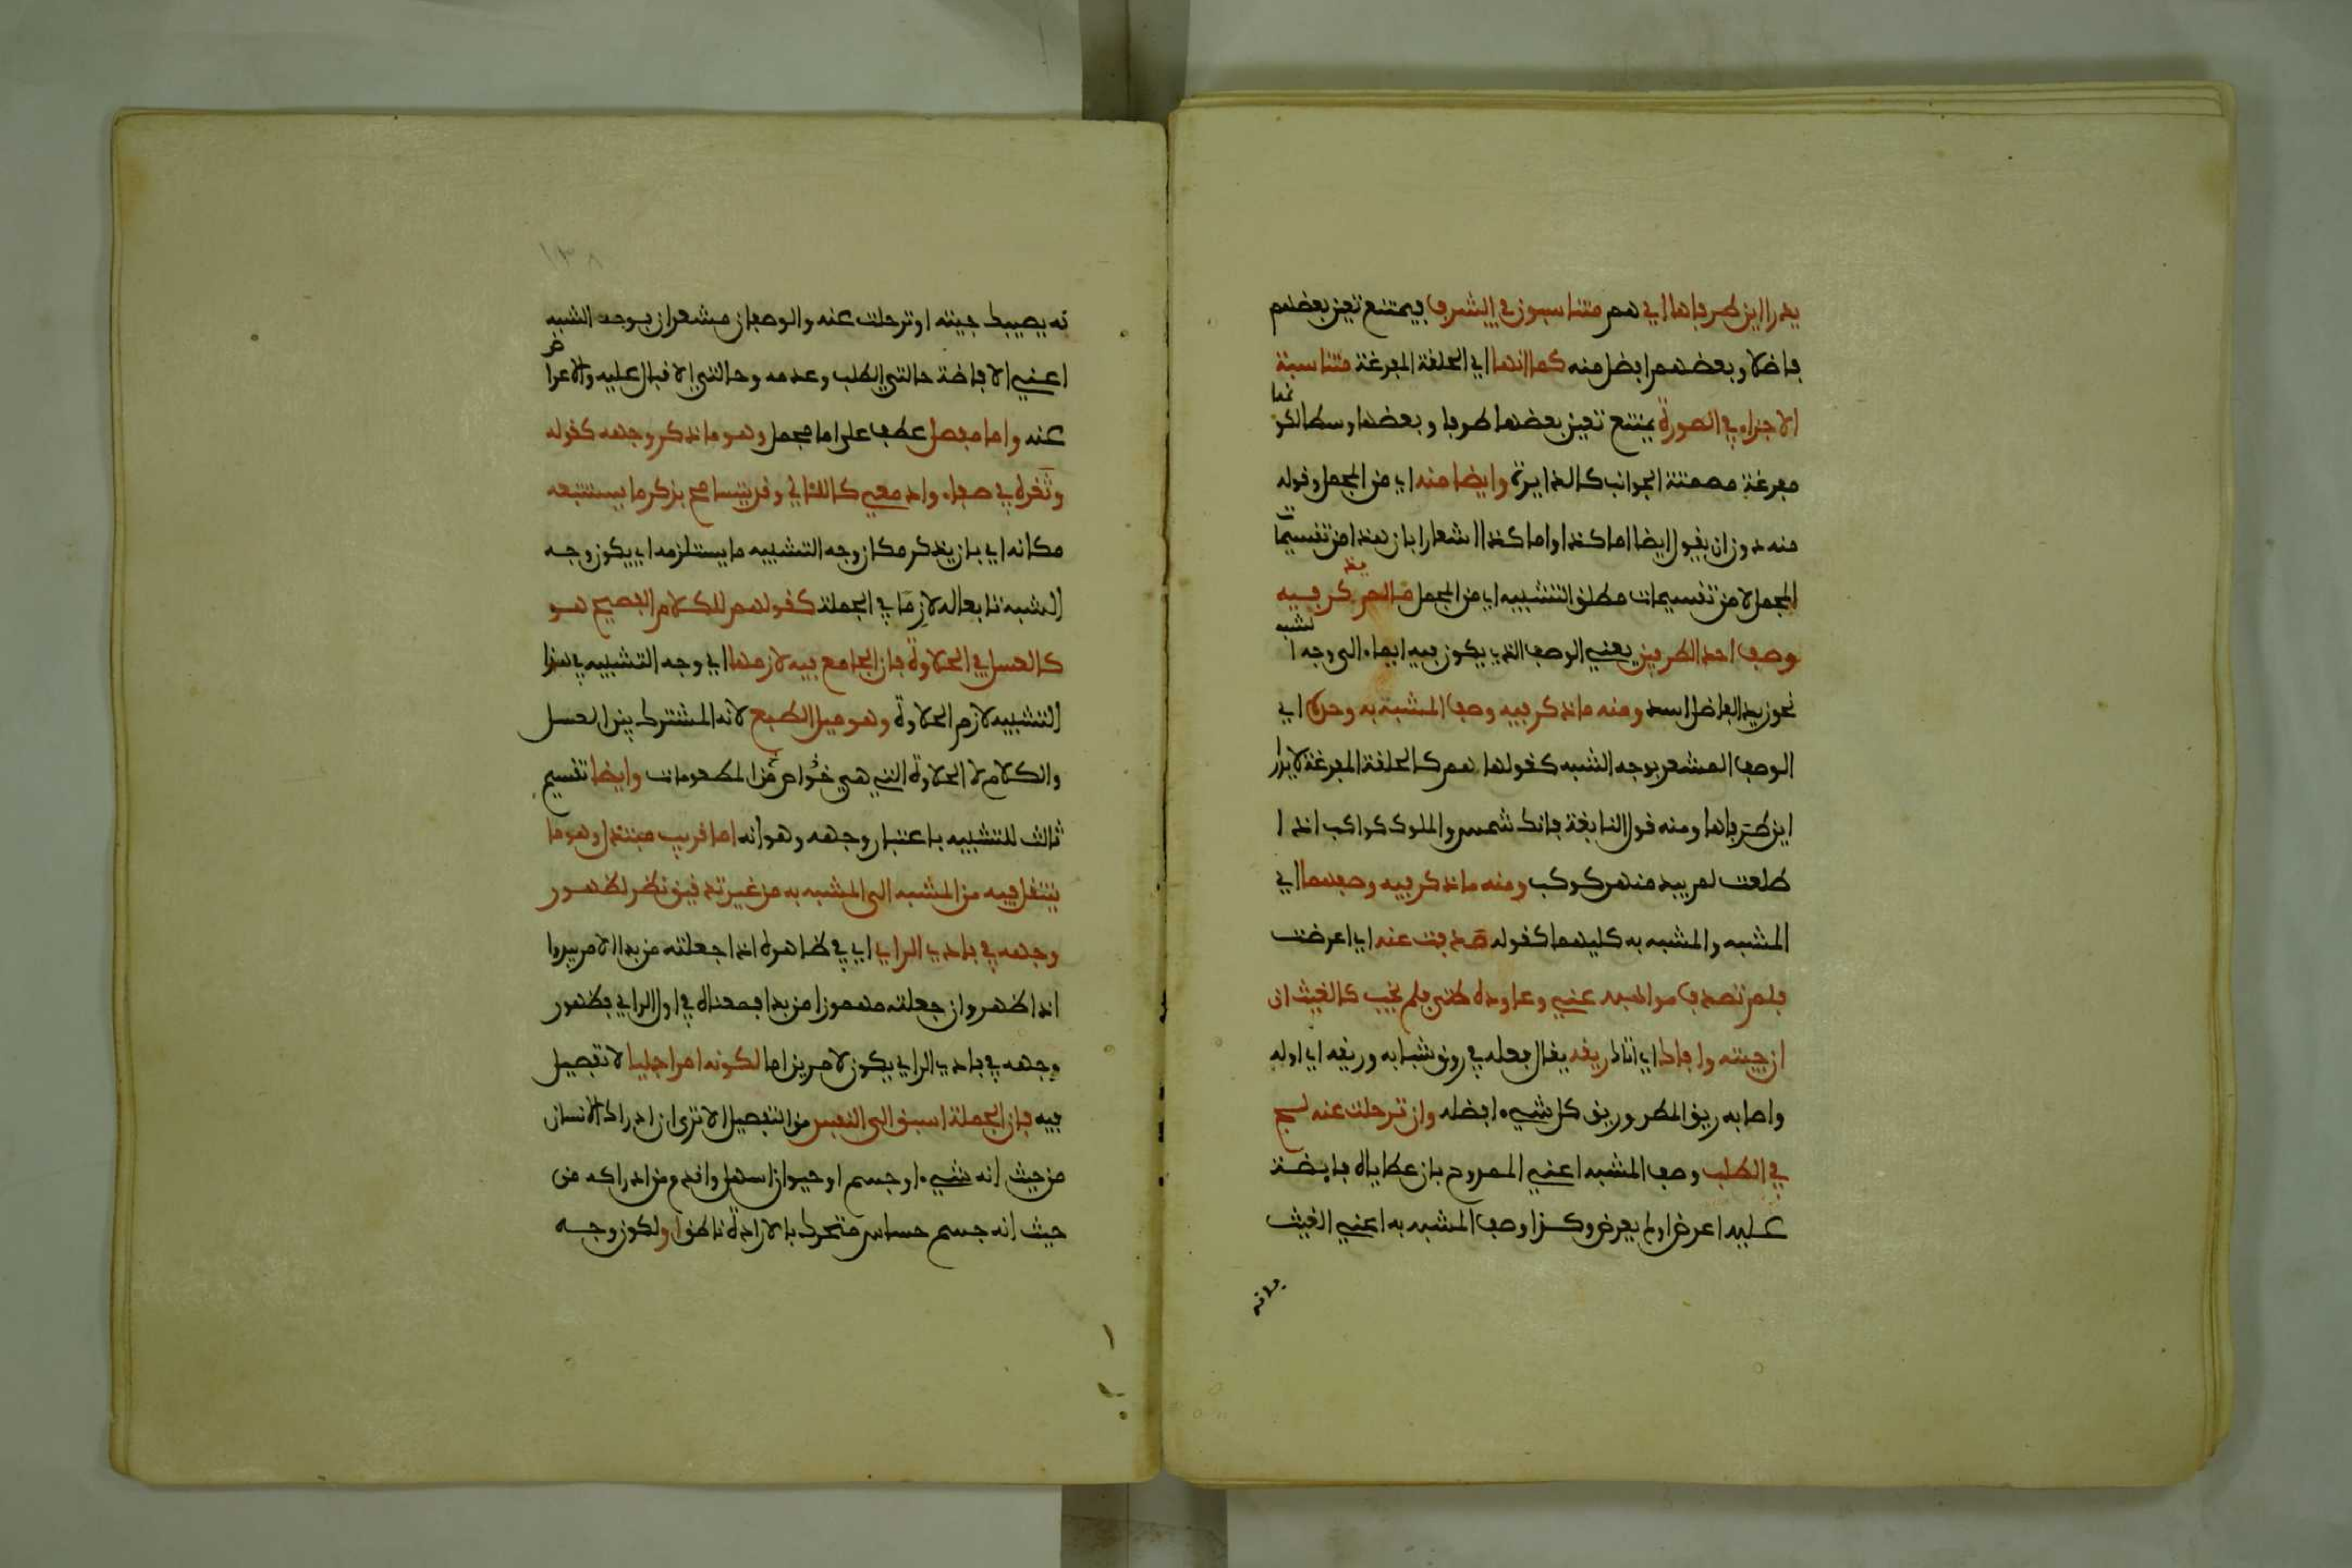 يدرى اين طرفاها اي هم متناسبون في الشرف فيمتنع تعين بعضهم
فاضلا وبعضهم افضل منه كما انها اي الحلقة المفرغة متناسبة
الاجزاء في الصورة يمتنع تعين بعضها طرفا وبعضها وسطا لكونها
مفرغة مصمتة الجوانب كالدايرة وايضا منه اي من المجمل وقوله
منه دون ان يقول ايضا اما كذا واما كذا اشعارا بان هذا من تقسيمات
المجمل لا من تقسيمات مطلق التشبيه اي من المجمل ما لم يذكر فيه
وصف احد الطرفين يعني الوصف الذي يكون فيه ايماء الى وجه الشبه
نحو زيد الفاضل اسد ومنه ما ذكر فيه وصف المشبة به وحده اي
الوصف المشعر بوجه الشبه كقولها هم كالحلقة المفرغة لا يدرا
اين طرفاها ومنه قول النابغة فانك شمس والملوك كواكب اذا
طلعت لم يبد منهم كوكب ومنه ما ذكر فيه وصفهما اي
المشبه والمشبه به كليهما كقوله صدفت عنه اي اعرضت
فلم تصدف مواهبه عني وعاوده ظني فلم يخب كالغيث ان
ان جيته وافاك اي اتاك ريقه يقال فعله في روق شبابه وريقه اي اوله
واصابه ريق المطر وريق كل شيء افضله وان ترحلت عنه لج
في الطلب وصف المشبه اعني الممدوح بان عطاياه فايضة
عليه اعرض او لم يعرض وكذا وصف المشبه به اعني الغيث
بانه
١٣٨
نه يصيبك جيته او ترحلت عنه والوصفان مشعران بوجه الشبه
اعني الافاضة حالتي الطلب وعدمه وحالتي الاقبال عليه والاعراض
عنه واما مفصل عطف على اما مجمل وهو ما ذكر وجهه كقوله
وثغره في صفاء وادمعي كاللئالي وقد يتسامح بذكر ما يستتبعه
مكانه اي بان يذكر مكان وجه التشبيه ما يستلزمه اي يكون وجه
الشبه تابعا له لازما في الجملة كقولهم للكلام الفصيح هو
كالعسل في الحلاوة فان الجامع فيه لازمها اي وجه التشبيه في هذا
التشبيه لازم الحلاوة وهو ميل الطبع لانه المشترك بين العسل
والكلام لا الحلاوة التي هي خواص من المطعومات وايضا تقسيم
ثالث للتشبيه باعتبار وجهه وهو انه اما قريب مبتذل وهو ما
ينتقل فيه من المشبه الى المشبه به من غير تدقيق نظر لظهور
وجهه في بادي الراي اي في ظاهره اذا جعلته من بدا الامر يبدوا
اذا ظهر وان جعلته مهموزا من بدا فمعناه في اول الراي فظهور
وجهه في بادي الراي يكون لامرين اما لكونه امرا جليا لا تفصيل
فيه فان الجملة اسبق الى النفس من التفصيل الا ترى ان ادراك الانسان
من حيث انه شيء او جسم او حيوان اسهل واقدم من ادراكه من
حيث انه جسم حساس متحرك بالارادة ناطق او لكون وجه